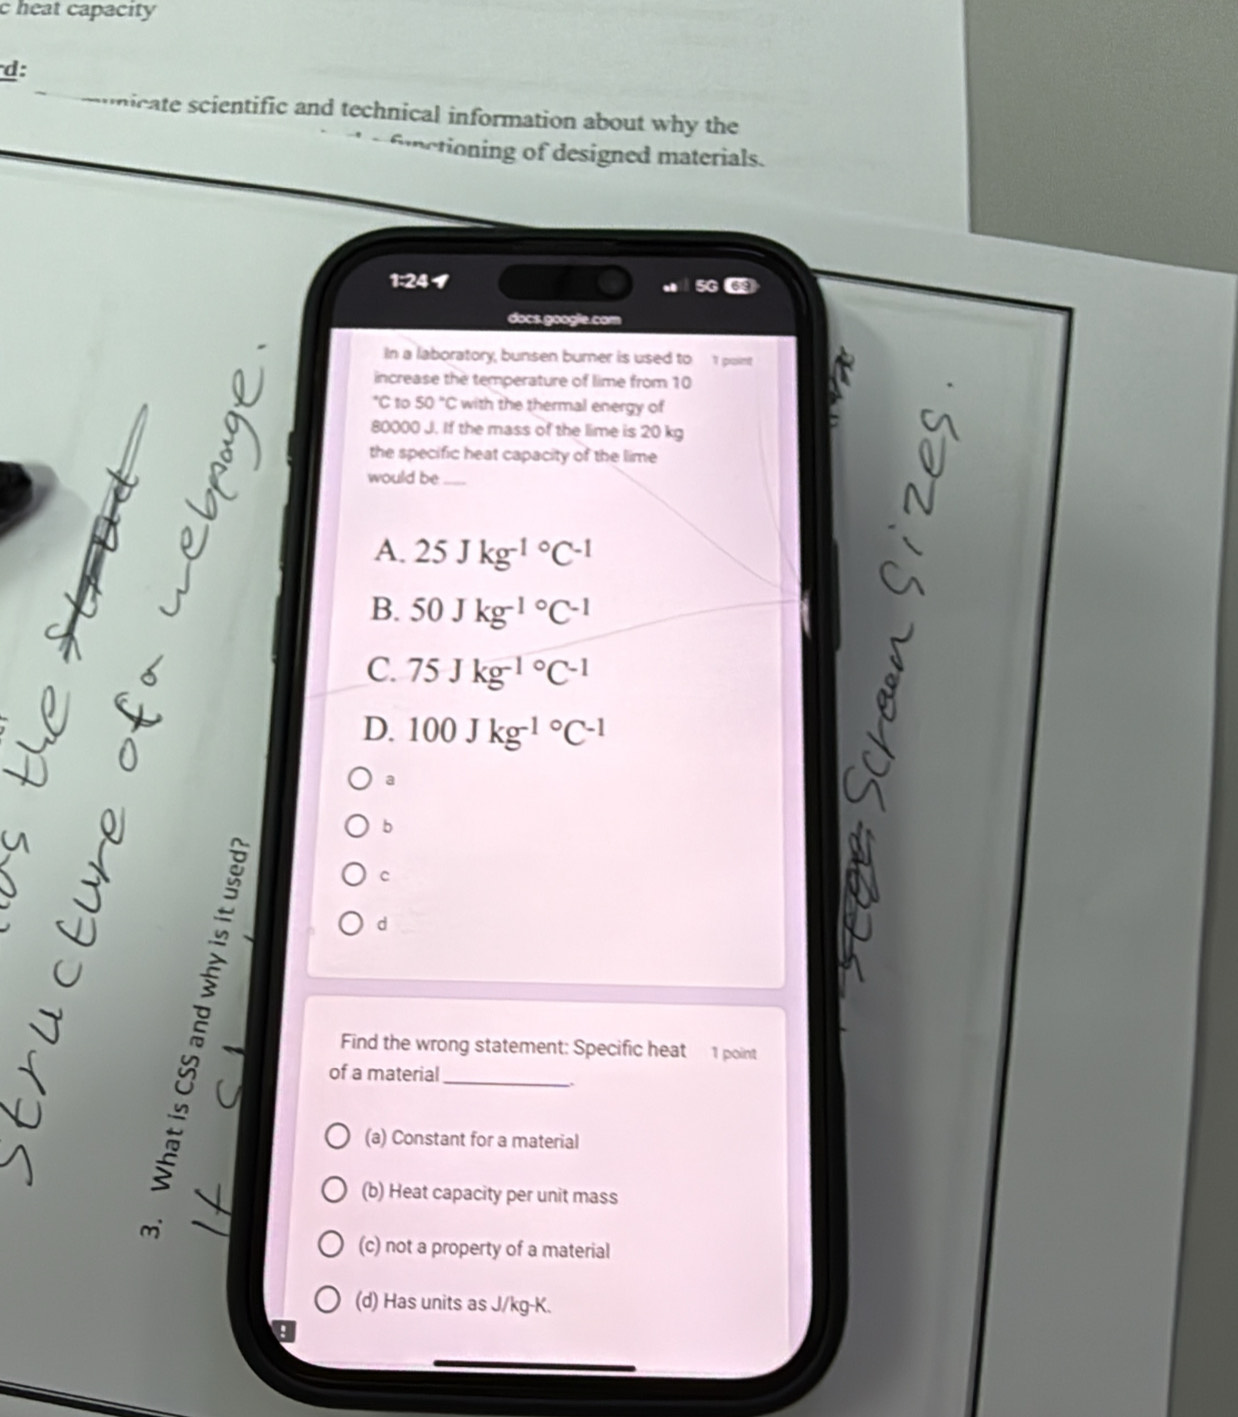 c heat capacity
d:
scientific and technical information about why the
functioning of designed materials.
1:24
5G 69
docs.google.com
In a laboratory, bunsen burner is used to 1 point
increase the temperature of lime from 10
°C to 50 °C with the thermal energy of
80000 J. If the mass of the lime is 20 kg
the specific heat capacity of the lime
would be ___
A. 25 J kg-1 °C-1
B. 50 J kg-1 °C-1
C. 75 J kg-1 °C-1
D. 100 J kg-1 °C-1
a
b
c
d
Find the wrong statement: Specific heat 1 point
of a material ____________.
(a) Constant for a material
(b) Heat capacity per unit mass
(c) not a property of a material
(d) Has units as J/kg-K.
the
structure of a webpage.
3. What is CSS and why is it used?
It
Screen sizes.